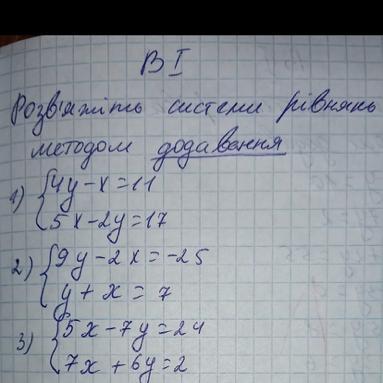 В I
Розв'яжіть системи рівнянь
методом додавання
1) {4y - x = 11
5x - 2y = 17
2) {9y - 2x = -25
y + x = 7
3) {5x - 7y = 24
7x + 6y = 2